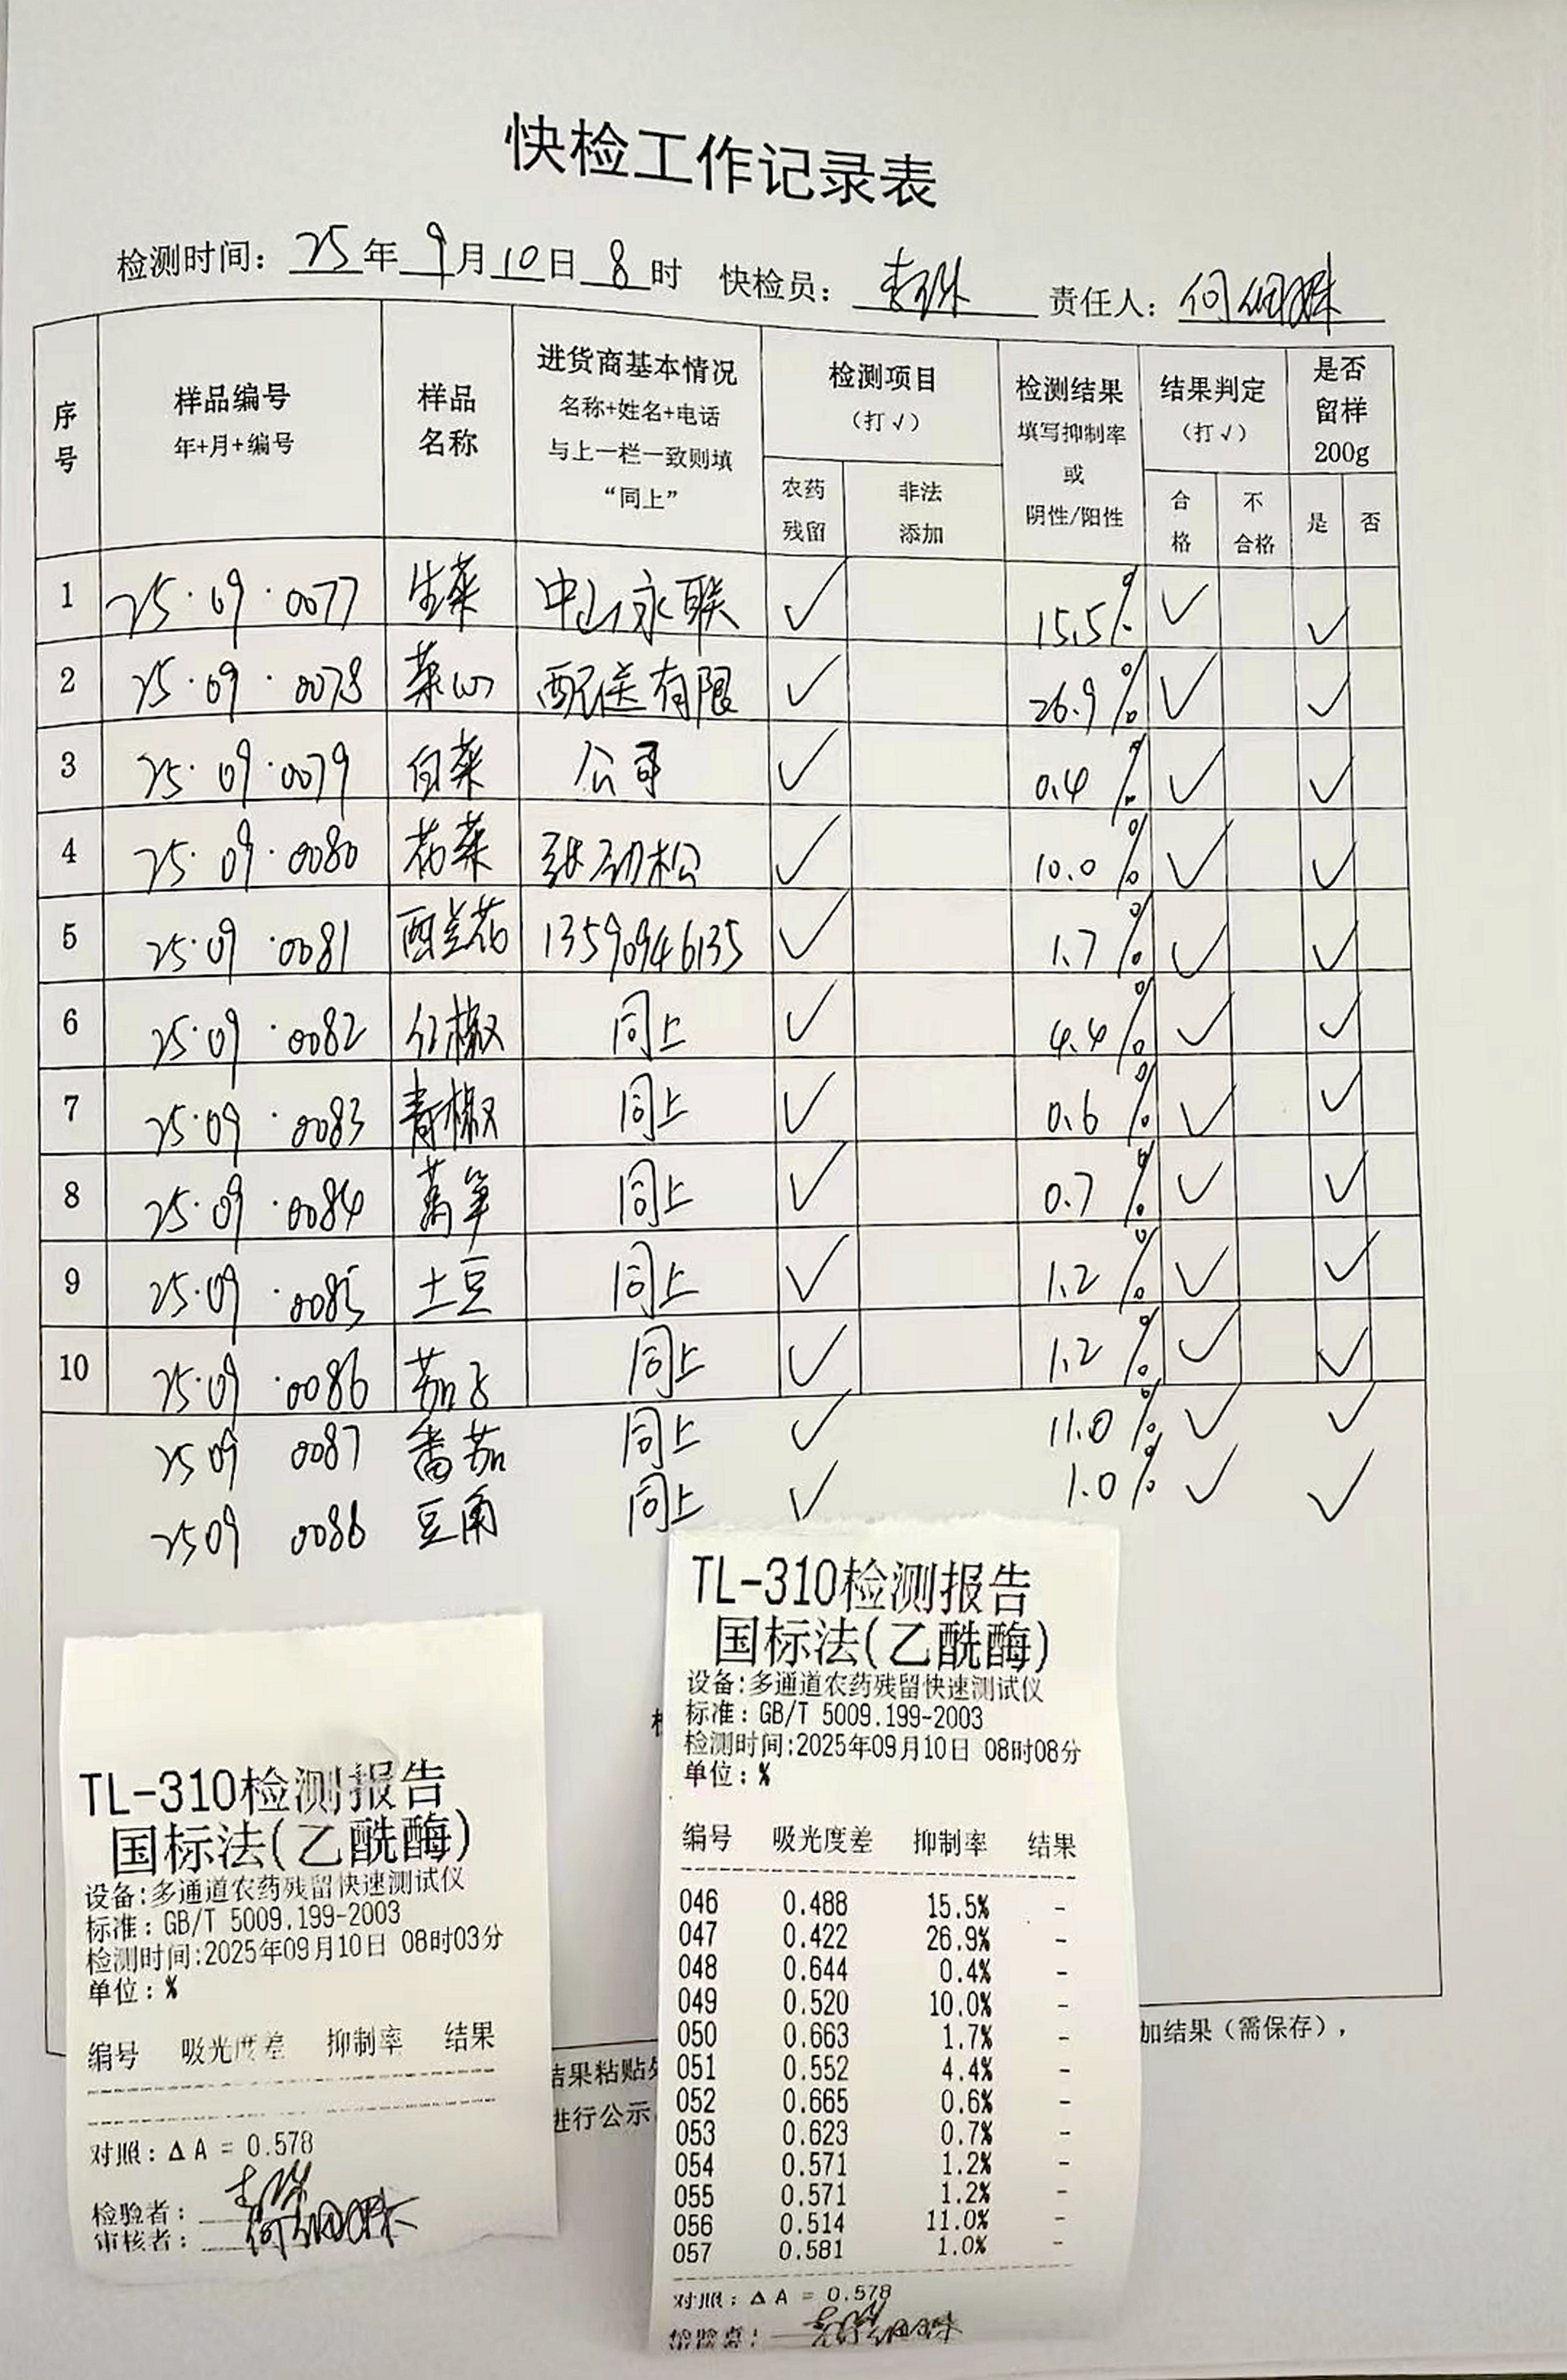 快检工作记录表
检测时间：25年9月10日8时 快检员： 责任人：何
序号 样品编号 年+月+编号 样品名称 进货商基本情况 名称+姓名+电话 与上一栏一致则填“同上” 检测项目（打√） 农药残留 非法添加 检测结果 填写抑制率或阴性/阳性 结果判定（打√） 合格 不合格 是否留样200g 是 否
1 25·09·0077 生菜 中山永联 ✓ 15.5% ✓ ✓
2 25·09·0078 菜心 配送有限 ✓ 26.9% ✓ ✓
3 25·09·0079 白菜 公司 ✓ 0.4% ✓ ✓
4 25·09·0080 花菜 张劲松 ✓ 10.0% ✓ ✓
5 25·09·0081 西兰花 13590946135 ✓ 1.7% ✓ ✓
6 25·09·0082 红椒 同上 ✓ 4.4% ✓ ✓
7 25·09·0083 青椒 同上 ✓ 0.6% ✓ ✓
8 25·09·0084 莴笋 同上 ✓ 0.7% ✓ ✓
9 25·09·0085 土豆 同上 ✓ 1.2% ✓ ✓
10 25·09·0086 茄子 同上 ✓ 1.2% ✓ ✓
2509 0087 番茄 同上 ✓ 11.0% ✓ ✓
2509 0088 豆角 同上 ✓ 1.0% ✓ ✓
TL-310检测报告
国标法(乙酰酶)
设备:多通道农药残留快速测试仪
标准：GB/T 5009.199-2003
检测时间:2025年09月10日 08时03分
单位：%
编号 吸光度差 抑制率 结果
对照：ΔA = 0.578
检验者：
审核者：
TL-310检测报告
国标法(乙酰酶)
设备:多通道农药残留快速测试仪
标准：GB/T 5009.199-2003
检测时间:2025年09月10日 08时08分
单位：%
编号 吸光度差 抑制率 结果
046 0.488 15.5% -
047 0.422 26.9% -
048 0.644 0.4% -
049 0.520 10.0% -
050 0.663 1.7% -
051 0.552 4.4% -
052 0.665 0.6% -
053 0.623 0.7% -
054 0.571 1.2% -
055 0.571 1.2% -
056 0.514 11.0% -
057 0.581 1.0% -
对照：ΔA = 0.578
检验者：
加结果（需保存），
结果粘贴处
进行公示